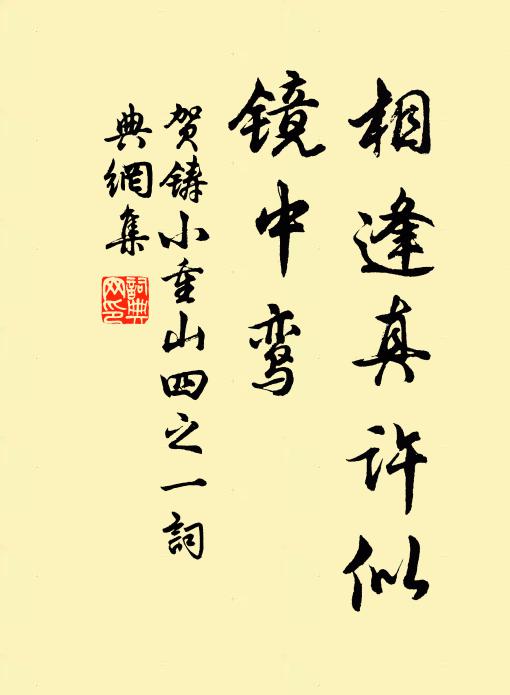 相逢真许似
镜中鸾
贺铸小重山四之一詞
典網集
詞典
网印